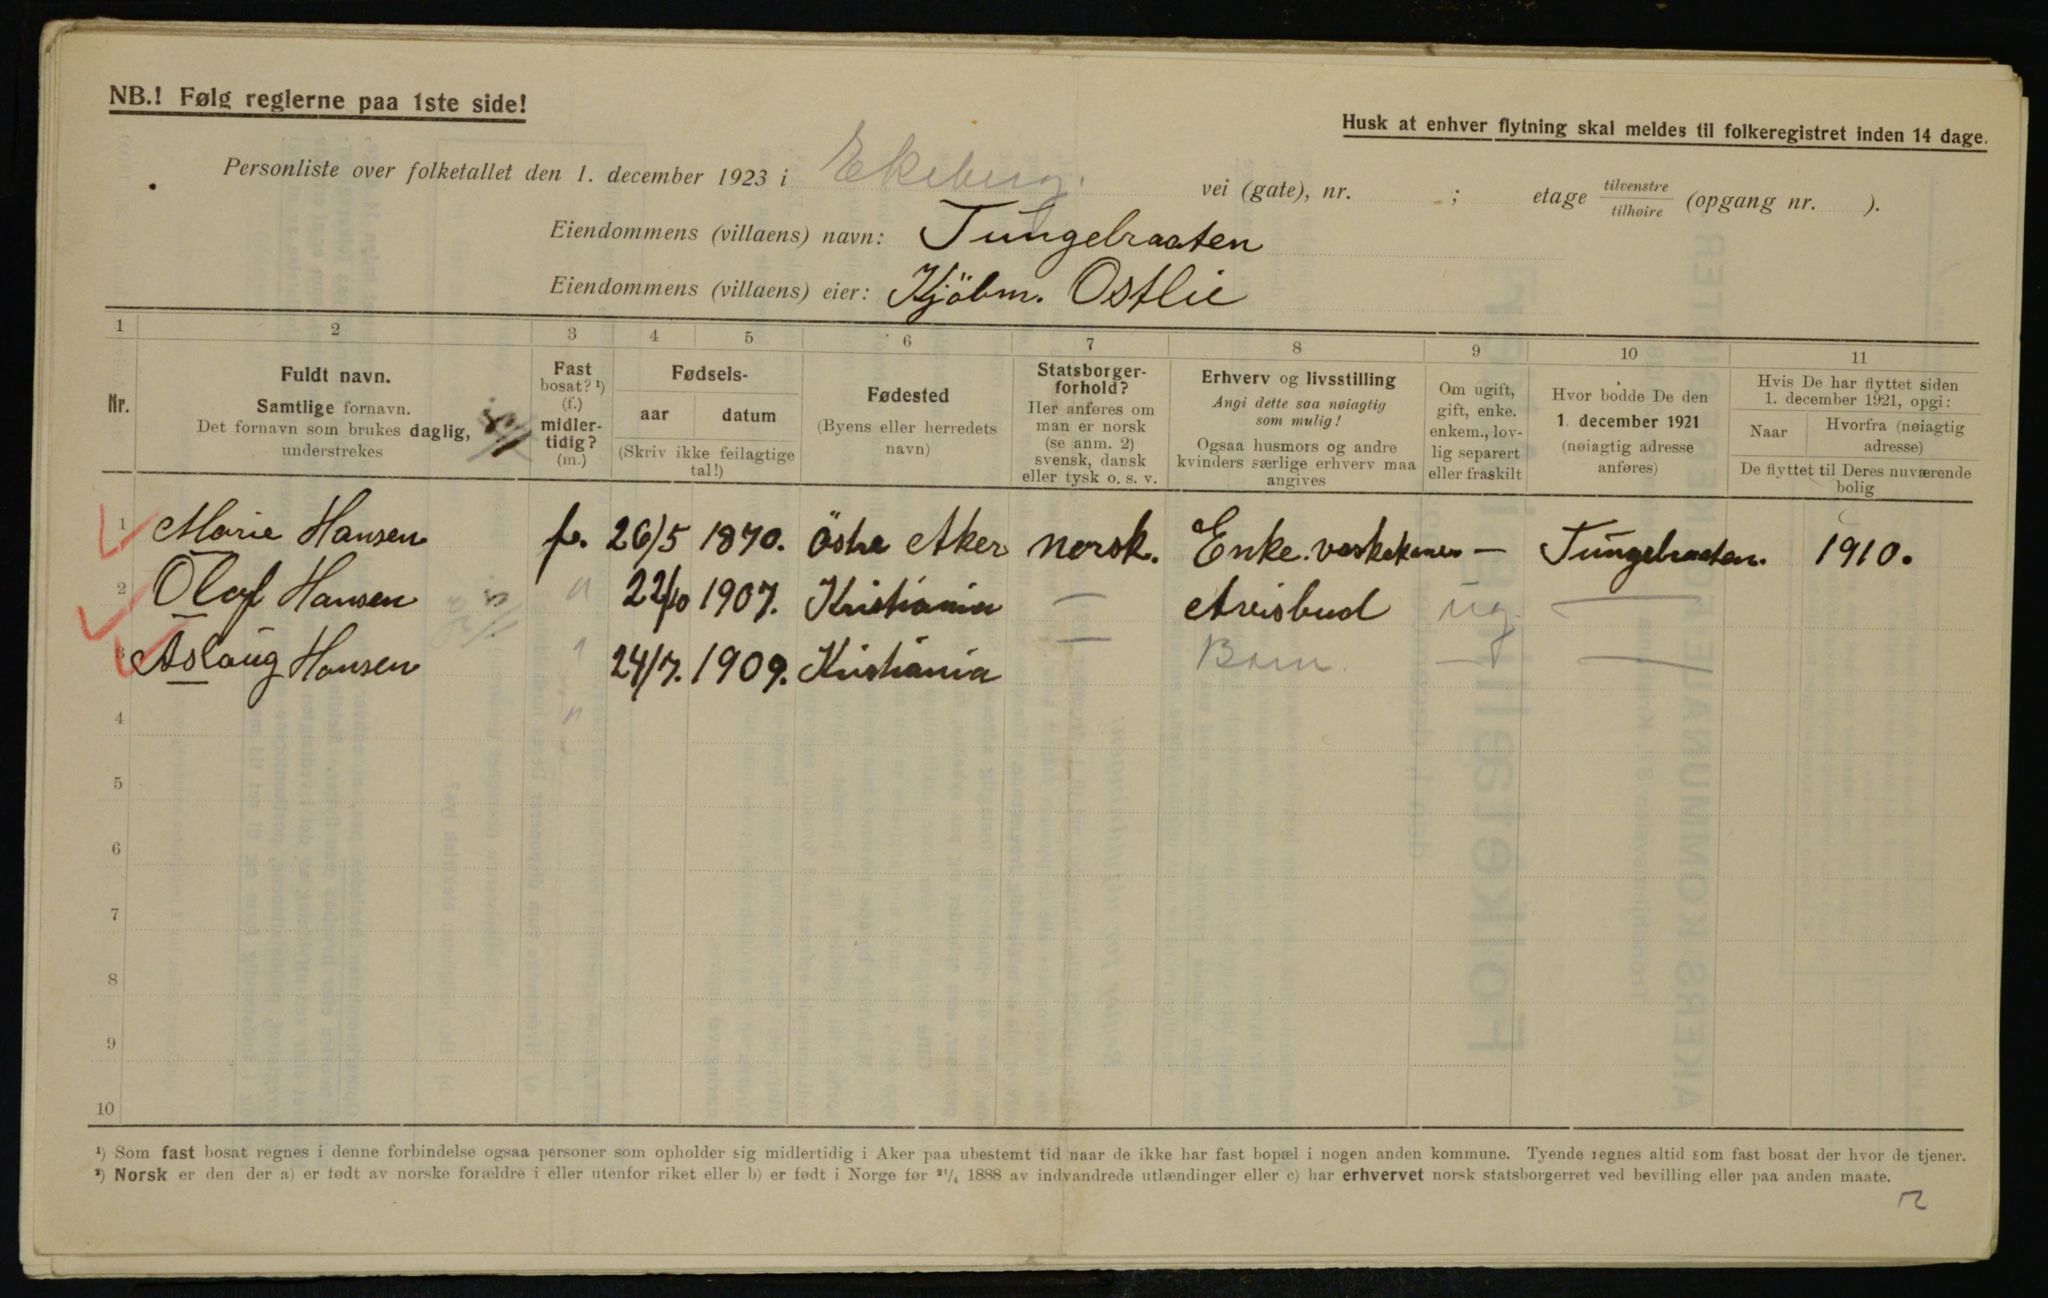 NB.! Følg reglerne paa 1ste side!
Husk at enhver flytning skal meldes til folkeregistret inden 14 dage.
Personliste over folketallet den 1. december 1923 i Ekeberg. vei (gate), nr. ; etage tilvenstre tilhøire (opgang nr. ).
Eiendommens (villaens) navn: Tungebraaten
Eiendommens (villaens) eier: Kjöbm. Ostlie
1 2 3 4 5 6 7 8 9 10 11
Nr.
Fuldt navn.
Samtlige fornavn.
Det fornavn som brukes daglig,
understrekes
Fast
bosat? ¹)
(f.)
midler-
tidig?
(m.)
Fødsels-
aar datum
(Skriv ikke feilagtige
tal!)
Fødested
(Byens eller herredets
navn)
Statsborger-
forhold?
Her anføres om
man er norsk
(se anm. 2)
svensk, dansk
eller tysk o. s. v.
Erhverv og livsstilling
Angi dette saa nøiagtig
som mulig!
Ogsaa husmors og andre
kvinders særlige erhverv maa
angives
Om ugift,
gift, enke.
enkem., lov-
lig separert
eller fraskilt
Hvor bodde De den
1. december 1921
(nøiagtig adresse
anføres)
Hvis De har flyttet siden
1. december 1921, opgi:
Naar
Hvorfra (nøiagtig
adresse)
De flyttet til Deres nuværende
bolig
1 Marie Hansen f. 26/5 1870. östre Aker norsk. Enke. vaskekone — Tungebraaten. 1910.
2 Olaf Hansen " 22/10 1907. Kristiania — Avisbud ug. —
3 Aslaug Hansen " 24/7. 1909. Kristiania — Barn — —
4 "
5
6
7
8
9
10
¹) Som fast bosat regnes i denne forbindelse ogsaa personer som opholder sig midlertidig i Aker paa ubestemt tid naar de ikke har fast bopæl i nogen anden kommune. Tyende regnes altid som fast bosat der hvor de tjener.
²) Norsk er den der a) er født av norske forældre i eller utenfor riket eller b) er født i Norge før ²¹/₄ 1888 av indvandrede utlændinger eller c) har erhvervet norsk statsborgerret ved bevilling eller paa anden maate.